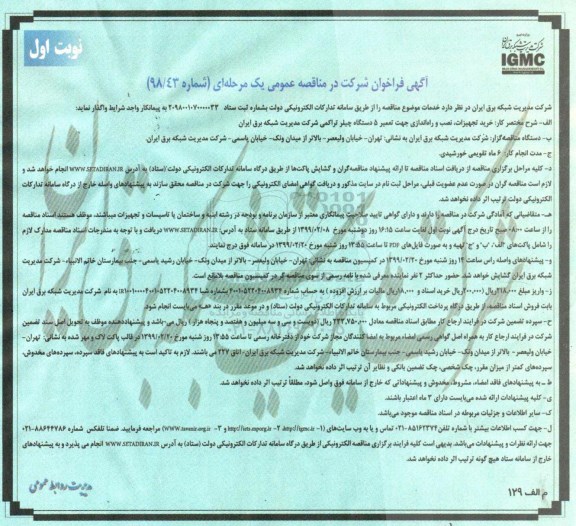 نوبت اول
شرکت مدیریت شبکه برق ایران
IGMC
آگهی فراخوان شرکت در مناقصه عمومی یک مرحله‌ای (شماره ۹۸/۴۳)
شرکت مدیریت شبکه برق ایران در نظر دارد خدمات موضوع مناقصه را از طریق سامانه تدارکات الکترونیکی دولت بشماره ثبت ستاد ۲۰۹۸۰۰۱۰۷۰۰۰۰۳۳ به پیمانکار واجد شرایط واگذار نماید:
الف- شرح مختصر کار: خرید تجهیزات، نصب و راه‌اندازی جهت تعمیر ۵ دستگاه چیلر تراکمی شرکت مدیریت شبکه برق ایران
ب- دستگاه مناقصه‌گزار: شرکت مدیریت شبکه برق ایران به نشانی: تهران- خیابان ولیعصر- بالاتر از میدان ونک- خیابان یاسمی- شرکت مدیریت شبکه برق ایران.
ج- مدت انجام کار: ۶ ماه تقویمی خورشیدی.
د- کلیه مراحل برگزاری مناقصه از دریافت اسناد مناقصه تا ارائه پیشنهاد مناقصه‌گران و گشایش پاکت‌ها از طریق درگاه سامانه تدارکات الکترونیکی دولت (ستاد) به آدرس WWW.SETADIRAN.IR انجام خواهد شد و
لازم است مناقصه گران در صورت عدم عضویت قبلی، مراحل ثبت نام در سایت مذکور و دریافت گواهی امضای الکترونیکی را جهت شرکت در مناقصه محقق سازند به پیشنهادهای واصله خارج از درگاه سامانه تدارکات
الکترونیکی دولت ترتیب اثر داده نخواهد شد.
هـ- متقاضیانی که آمادگی شرکت در مناقصه را دارند و دارای گواهی تایید صلاحیت پیمانکاری معتبر از سازمان برنامه و بودجه در رشته ابنیه و ساختمان یا تاسیسات و تجهیزات میباشند، موظف هستند اسناد مناقصه
را از ساعت ۸:۰۰ صبح تاریخ درج آگهی نوبت اول لغایت ساعت ۱۶:۱۵ روز دوشنبه مورخ ۱۳۹۹/۰۲/۰۸ از طریق سامانه ستاد به آدرس WWW.SETADIRAN.IR دریافت و با توجه به مندرجات اسناد مناقصه مدارک لازم
را شامل پاکت‌های "الف"، "ب" و "ج" تهیه و به صورت فایل‌های PDF تا ساعت ۱۳:۵۵ روز شنبه مورخ ۱۳۹۹/۰۲/۲۰ در سامانه فوق درج نمایند.
و- پیشنهادهای واصله راس ساعت ۱۴ روز شنبه مورخ ۱۳۹۹/۰۲/۲۰ در کمیسیون مناقصه به نشانی تهران- خیابان ولیعصر- بالاتر از میدان ونک- خیابان رشید یاسمی- جنب بیمارستان خاتم الانبیاء- شرکت مدیریت
شبکه برق ایران گشایش خواهد شد. حضور حداکثر ۲ نفر نماینده معرفی شده با نامه رسمی از سوی مناقصه گر در کمیسیون مناقصه بلامانع است.
ز- واریز مبلغ ۲۱۸,۰۰۰ریال (۲۰۰,۰۰۰ریال خرید اسناد و ۱۸,۰۰۰ریال مالیات بر ارزش افزوده) به حساب شماره به نام شرکت مدیریت شبکه برق ایران
بابت فروش اسناد مناقصه از طریق درگاه پرداخت الکترونیکی مربوط به سامانه تدارکات الکترونیکی دولت (ستاد) و در موعد مقرر در بند «هـ» می‌بایست انجام شود.
ح- سپرده تضمین شرکت در فرایند ارجاع کار مطابق اسناد مناقصه معادل ریال (دویست و سی و سه میلیون و هفتصد و پنجاه هزار) ریال می‌باشد و پیشنهاددهنده موظف به تحویل اصل سند تضمین
شرکت در فرایند ارجاع کار به همراه اصل گواهی رسمی امضاء مربوط به امضا کنندگان مجاز شرکت خود از دفترخانه رسمی تا ساعت ۱۳:۵۵ روز شنبه مورخ ۱۳۹۹/۰۲/۲۰ در قالب پاکت لاک و مهر شده به نشانی: تهران-
خیابان ولیعصر- بالاتر از میدان ونک- خیابان رشید یاسمی- جنب بیمارستان خاتم الانبیاء- شرکت مدیریت شبکه برق ایران- اتاق ۲۲۷ می باشند. لازم به تاکید است به پیشنهادهای فاقد سپرده، سپرده‌های مخدوش،
سپرده‌های کمتر از میزان مقرر، چک شخصی، چک تضمین بانکی و نظایر آن ترتیب اثر داده نخواهد شد.
ط- به پیشنهادهای فاقد امضاء، مشروط، مخدوش و پیشنهاداتی که خارج از سامانه فوق واصل شود، مطلقاً ترتیب اثر داده نخواهد شد.
ی- کلیه پیشنهادات ارائه شده می‌بایست دارای ۳ ماه اعتبار باشند.
ک- سایر اطلاعات و جزئیات مربوطه در اسناد مناقصه موجود می‌باشد.
ل- جهت کسب اطلاعات بیشتر با شماره تلفن ۸۵۱۶۲۳۷۴-۰۲۱ تماس و یا به وب سایت‌های (۱- http://igmc.ir، ۲- http://iets.mporg.ir و ۳- www.tavanir.org.ir) مراجعه فرمایید. ضمنا تلفکس شماره ۸۸۶۴۴۷۸۶-۰۲۱
جهت ارائه نظرات و پیشنهادات می‌باشد. بدیهی است کلیه فرایند برگزاری مناقصه الکترونیکی از طریق درگاه سامانه تدارکات الکترونیکی دولت (ستاد) به آدرس WWW.SETADIRAN.IR انجام می پذیرد و به پیشنهادهای
خارج از سامانه ستاد هیچ گونه ترتیب اثر داده نخواهد شد.
مدیریت روابط عمومی
م الف ۱۲۹